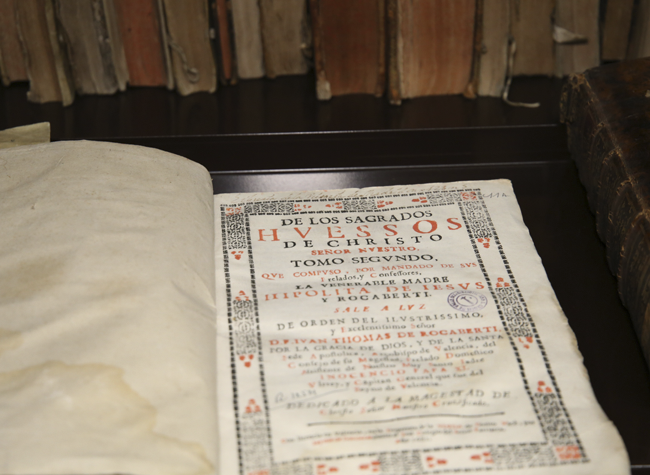 DE LOS SAGRADOS
HVESSOS
DE CHRISTO
SEÑOR NVESTRO.
TOMO SEGVNDO,
QVE COMPVSO, POR MANDADO DE SVS
Prelados, y Confessores,
LA VENERABLE MADRE
HIPOLITA DE IESVS
Y ROCABERTI.
SALE A LVZ
DE ORDEN DEL ILVSTRISSIMO,
y Excelentissimo Señor
D.F. IVAN THOMAS DE ROCABERTI,
POR LA GRACIA DE DIOS, Y DE LA SANTA
Sede Apostolica, Arçobispo de Valencia, del
INOCENCIO PAPA XI.
Virrey, y Capitan General que fue del
Reyno de Valencia.
DEDICADO A LA MAGESTAD DE
Christo Señor Nuestro Crucificado.